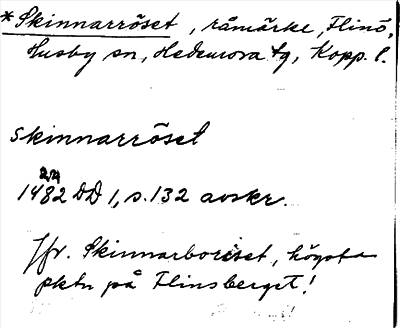 *Skinnarröset, råmärke, Flinö,
Husby sn, Hedemora tg, Kopp. l.
skinnarröset
22/4
1482 DD 1, s. 132 avskr.
Jfr. Skinnarboröset, högsta
pktn på Flinsberget!